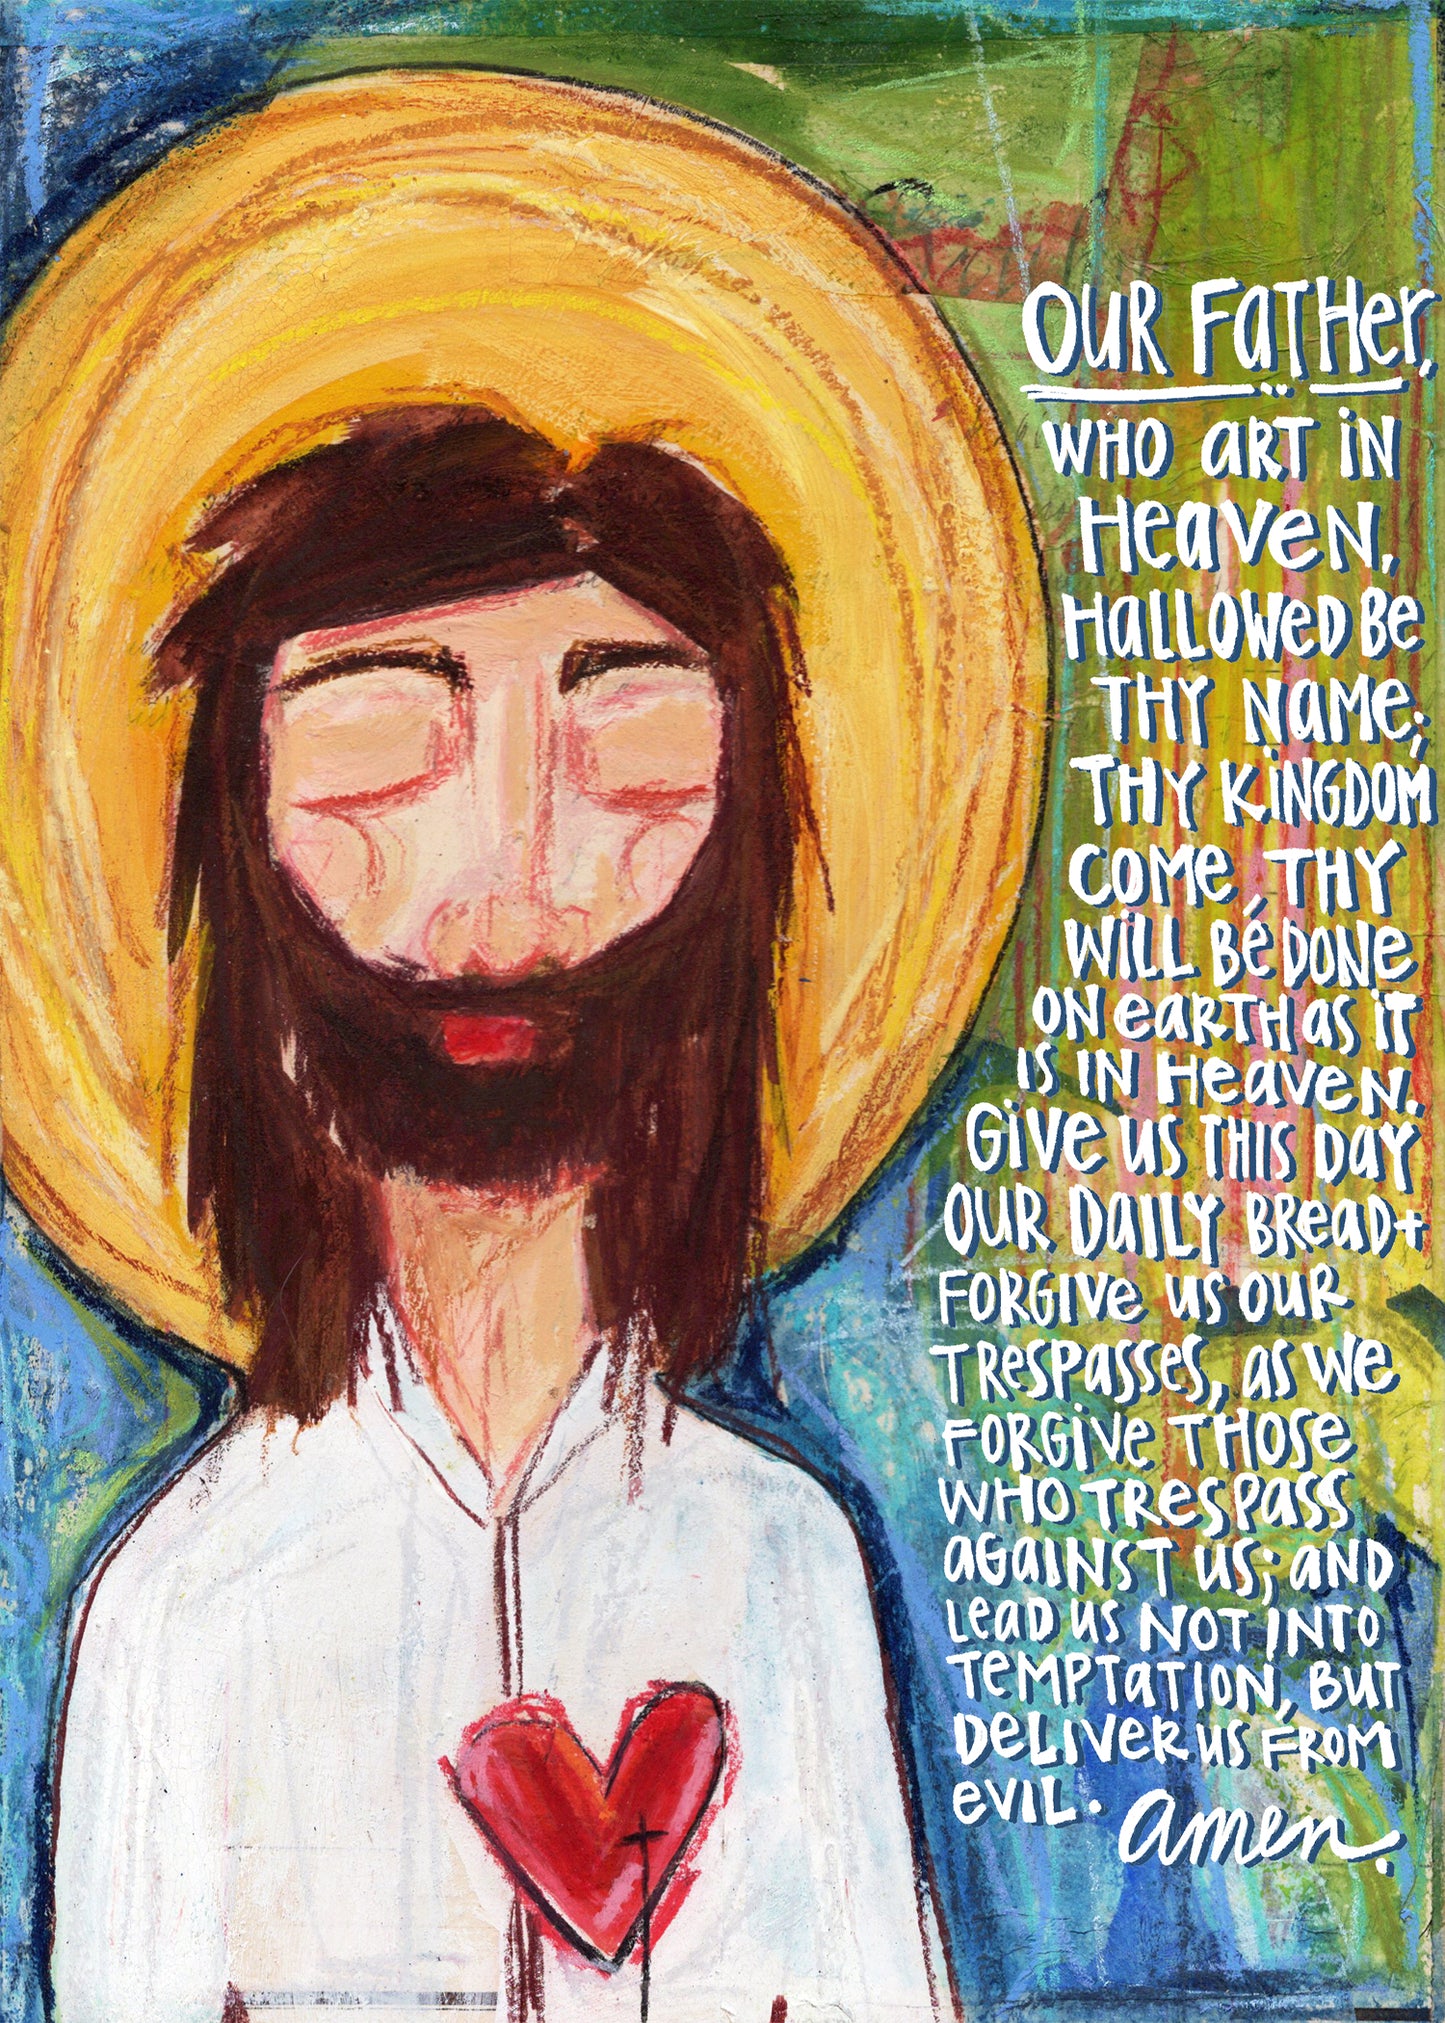 OUR FATHER,
WHO ART IN
HEAVEN,
HALLOWED BE
THY NAME;
THY KINGDOM
COME, THY
WILL BE DONE
ON EARTH AS IT
IS IN HEAVEN.
GIVE US THIS DAY
OUR DAILY BREAD +
FORGIVE US OUR
TRESPASSES, AS WE
FORGIVE THOSE
WHO TRESPASS
AGAINST US; AND
LEAD US NOT INTO
TEMPTATION, BUT
DELIVER US FROM
EVIL. Amen.